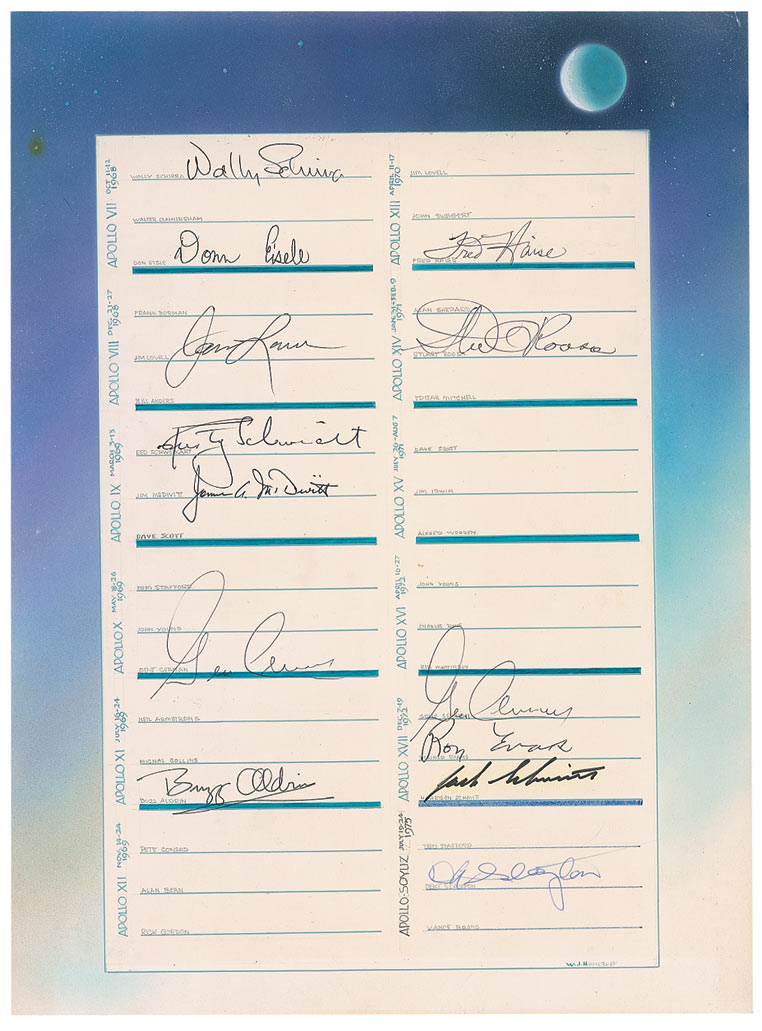 APOLLO VII OCT 11-12 1968
WALLY SCHIRRA Wally Schirra
WALTER CUNNINGHAM
DON EISLE Donn Eisele
APOLLO VIII DEC. 21-27 1968
FRANK BORMAN
JIM LOVELL
BILL ANDERS
APOLLO IX MARCH 3-13 1969
Rusty
JIM James A. McDivitt
DAVE SCOTT
APOLLO X MAY 18-26 1969
TOM STAFFORD
JOHN YOUNG
Gene Cernan
APOLLO XI JULY 16-24 1969
NEIL ARMSTRONG
COLLINS
BUZZ ALDRIN Buzz Aldrin
APOLLO XII NOV. 14-24 1969
PETE CONRAD
ALAN BEAN
GORDON
APOLLO XIII APRIL 11-17 1970
JIM LOVELL
JOHN SWIGERT
FRED Fred Haise
APOLLO XIV JAN. 31-FEB. 9 1971
ALAN SHEPARD
STUART ROOSA Stu Roosa
EDGAR MITCHELL
APOLLO XV JULY 26-AUG 7 1971
DAVE SCOTT
JIM IRWIN
ALFRED WORDEN
APOLLO XVI APRIL 16-27 1972
JOHN YOUNG
CHARLES DUKE
KEN MATTINGLY
APOLLO XVII DEC 7-19 1972
Gene Cernan
Ron Evans
Jack Schmitt
APOLLO-SOYUZ JULY 15-24 1975
TOM STAFFORD
Deke Slayton
VANCE BRAND